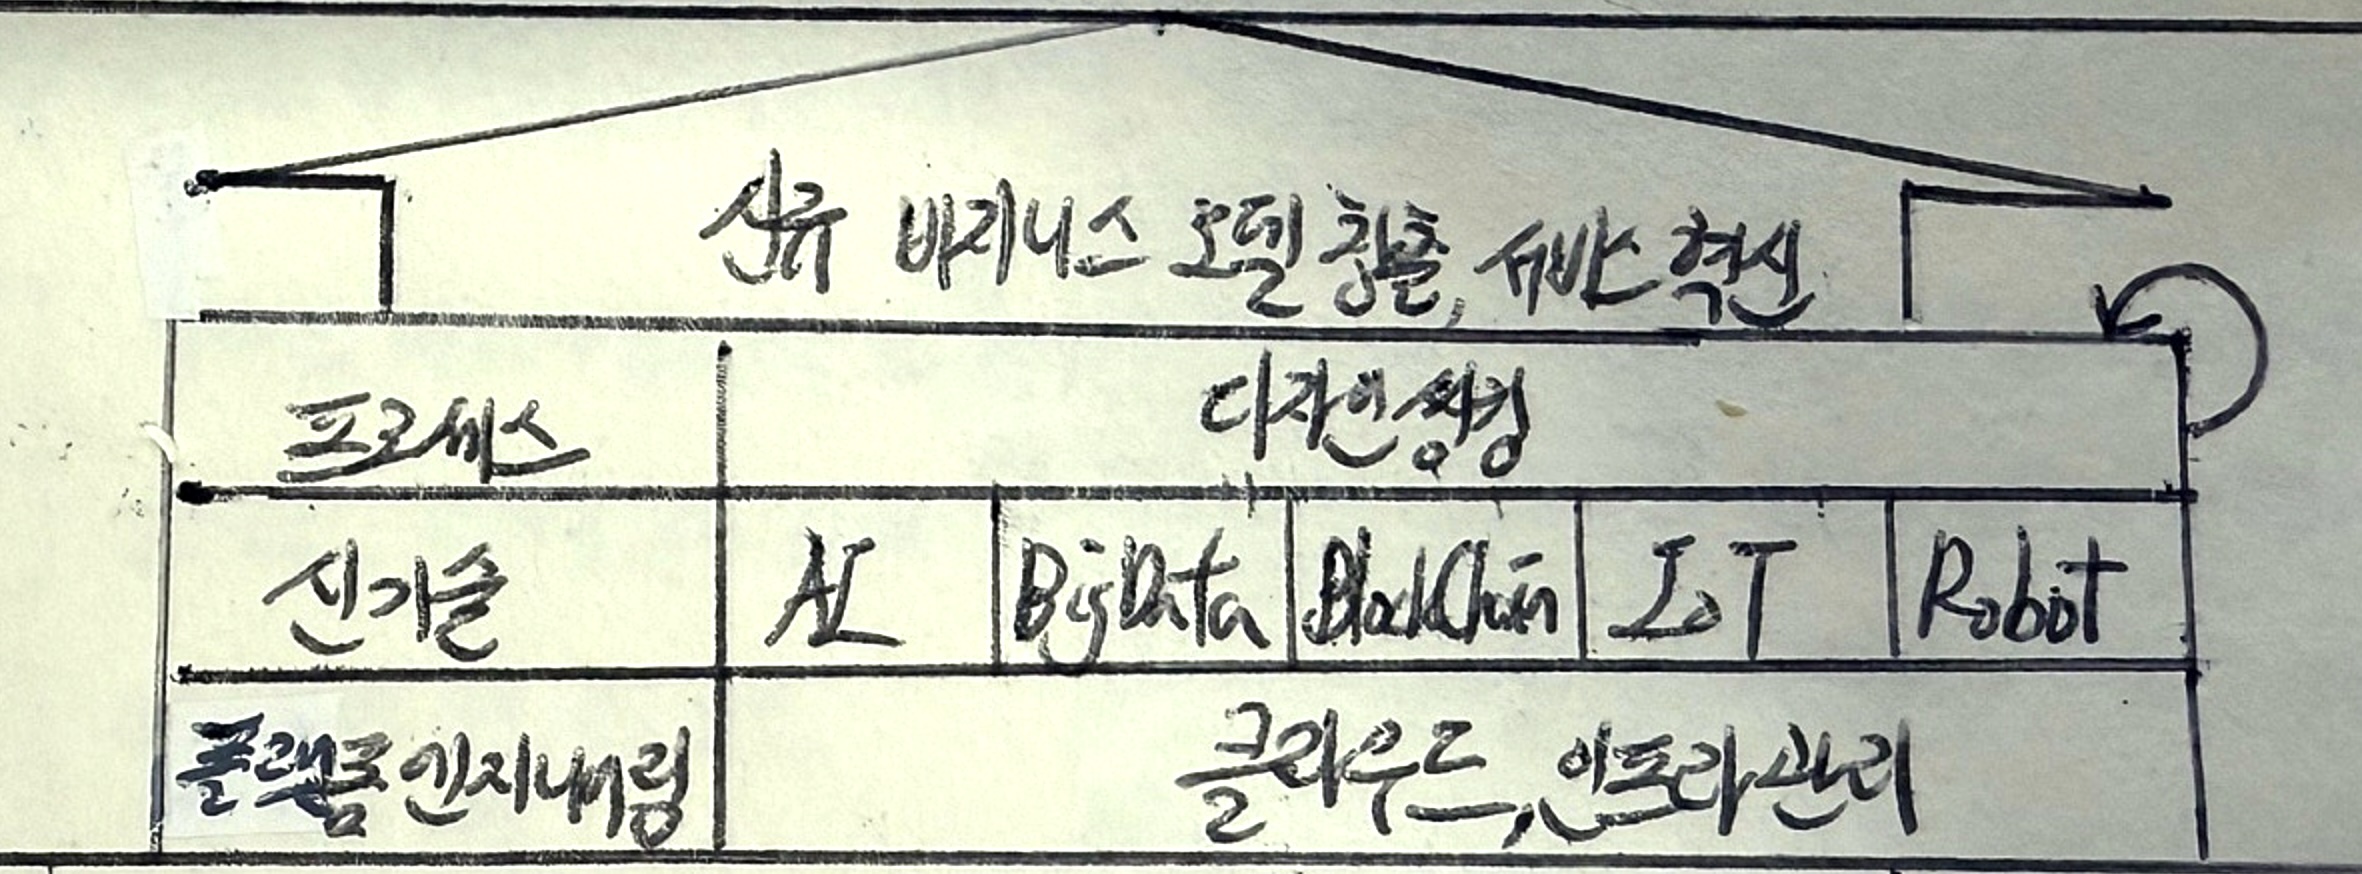 신규 비지니스 모델 창출, 서비스 혁신
프로세스
디자인씽킹
신기술
AI
BigData
BlockChain
IoT
Robot
플랫폼 엔지니어링
클라우드, 인프라 관리